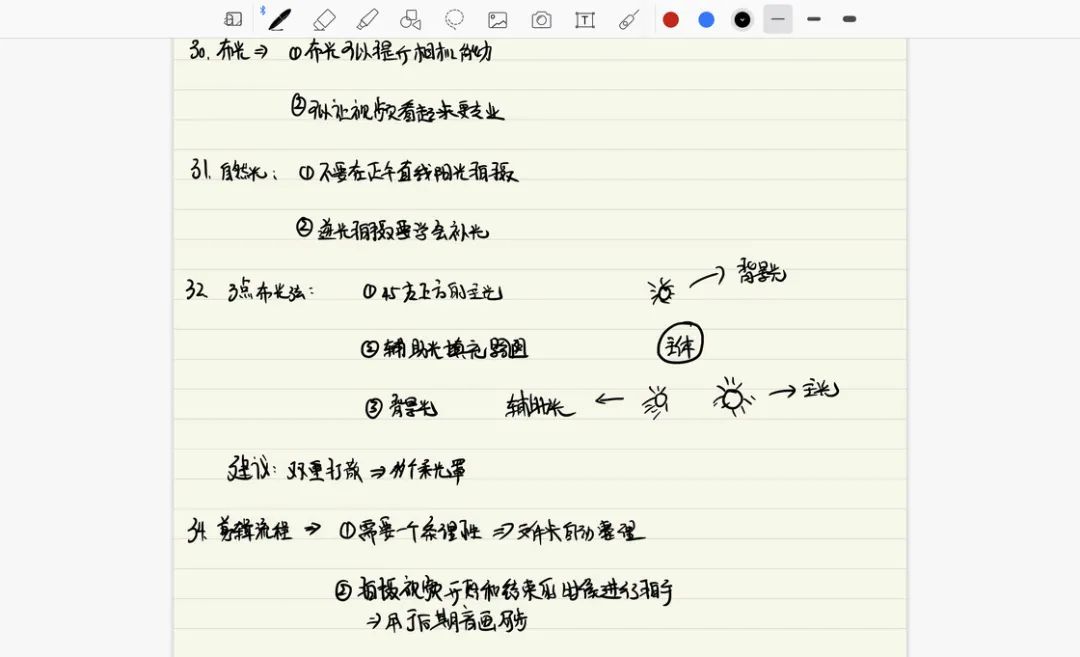 30. 布光 ⇒ ①布光可以提升相机的动
②可以让视频看起来更专业
31. 自然光: ①不要在正午直线阳光拍摄
②逆光拍摄要学会补光
背景光
32 3点布光法: ①45度上方的主光
主体
②辅助光填充
③背景光 辅助光 ← → 主光
建议: 双重打散 ⇒ 个柔光罩
34. 剪辑流程 ⇒ ①需要一个条理性 ⇒ 文件夹自动整理
②拍摄视频开始和结束的时候进行拍手
⇒ 用于后期音画同步
T